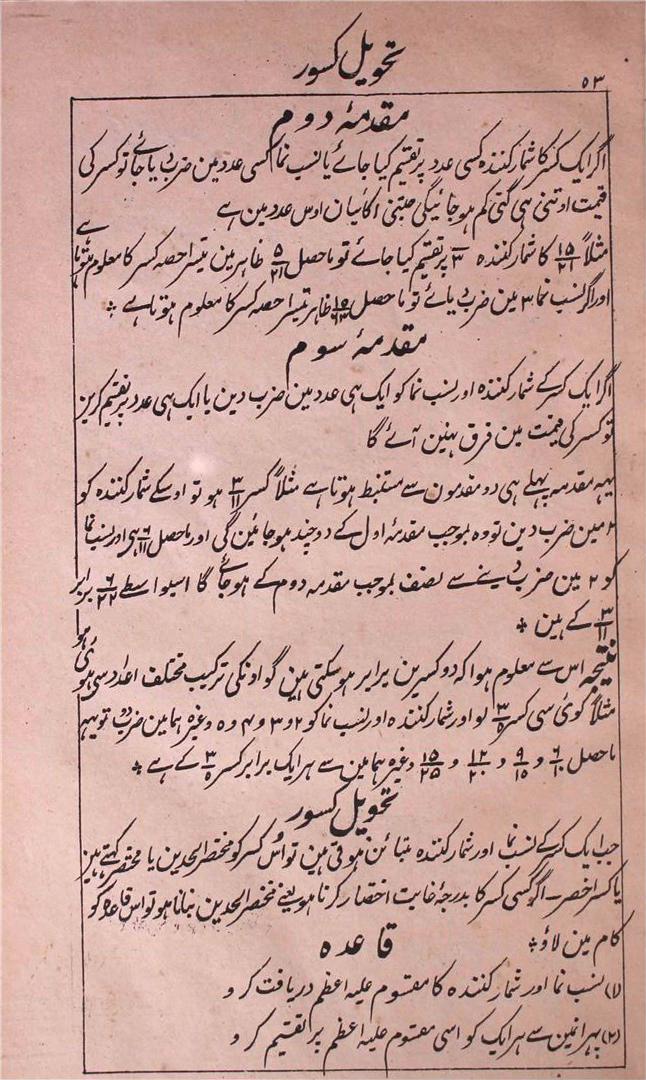 تحویل کسور
۵۳
مقدمۂ دوم
اگر ایک کسر کا شمار کنندہ کسی عدد پر تقسیم کیا جائے یا نسب نما کسی عدد مین ضرب دیا جائے تو کسر کی
قیمت اوتنی ہی گنی کم ہو جائیگی جتنی اکائیان اوس عدد مین ہے
مثلاً ۱۵/۲۱ کا شمار کنندہ ۳ پر تقسیم کیا جائے تو ماحصل ۵/۲۱ ظاہر مین تیسرا حصہ کسر کا معلوم ہوتا ہے
اور اگر نسب نما ۳ مین ضرب دیا ئے تو ماحصل ۱۵/۶۳ ظاہر تیسرا حصہ کسر کا معلوم ہوتا ہے ؞
مقدمۂ سوم
اگر ایک کسر کے شمار کنندہ اور نسب نما کو ایک ہی عدد مین ضرب دین یا ایک ہی عدد پر تقسیم کرین
تو کسر کی قیمت مین فرق نہین آئے گا
یہہ مقدمہ پہلے ہی دو مقدمون سے مستنبط ہوتا ہے مثلاً کسر ۳/۱۱ ہو تو اوسکے شمار کنندہ کو
۲ مین ضرب دین تو وہ بموجب مقدمۂ اول کے دوچند ہو جائین گی اور ماحصل ۶/۱۱ ہی اور نسب نما
کو ۲ مین ضرب دینے سے نصف بموجب مقدمہ دوم کے ہو جائے گا اسیواسطے ۶/۲۲ برابر
۳/۱۱ کے ہین ؞
نتیجہ اس سے معلوم ہوا کہ دو کسرین برابر ہو سکتی ہین گو اونکی ترکیب مختلف اعداد سی ہوئی ہو
مثلاً کوئی سی کسر ۳/۵ لو اور شمار کنندہ اور نسب نما کو ۲ و ۳ و ۴ و ۵ وغیرہما مین ضرب دو تو یہہ
ماحصل ۶/۱۰ و ۹/۱۵ و ۱۲/۲۰ و ۱۵/۲۵ وغیرہما مین سے ہر ایک برابر کسر ۳/۵ کے ہے ؞
تحویل کسور
جب ایک کسر کے نسب نما اور شمار کنندہ متبائن ہوتی ہین تو اُس کسر کو مختصر الحدین یا مختصر کہتے ہین
یا کسر اخصر ۔ اگر کسی کسر کا بدرجۂ غایت اختصار کرنا ہو یعنے مختصر الحدین بنانا ہو تو اس قاعدہ کو
کام مین لاؤ ؞
قاعدہ
(۱) نسب نما اور شمار کنندہ کا مقسوم علیہ اعظم دریافت کرو
(۲) پہر انمین سے ہر ایک کو اسی مقسوم علیہ اعظم پر تقسیم کرو